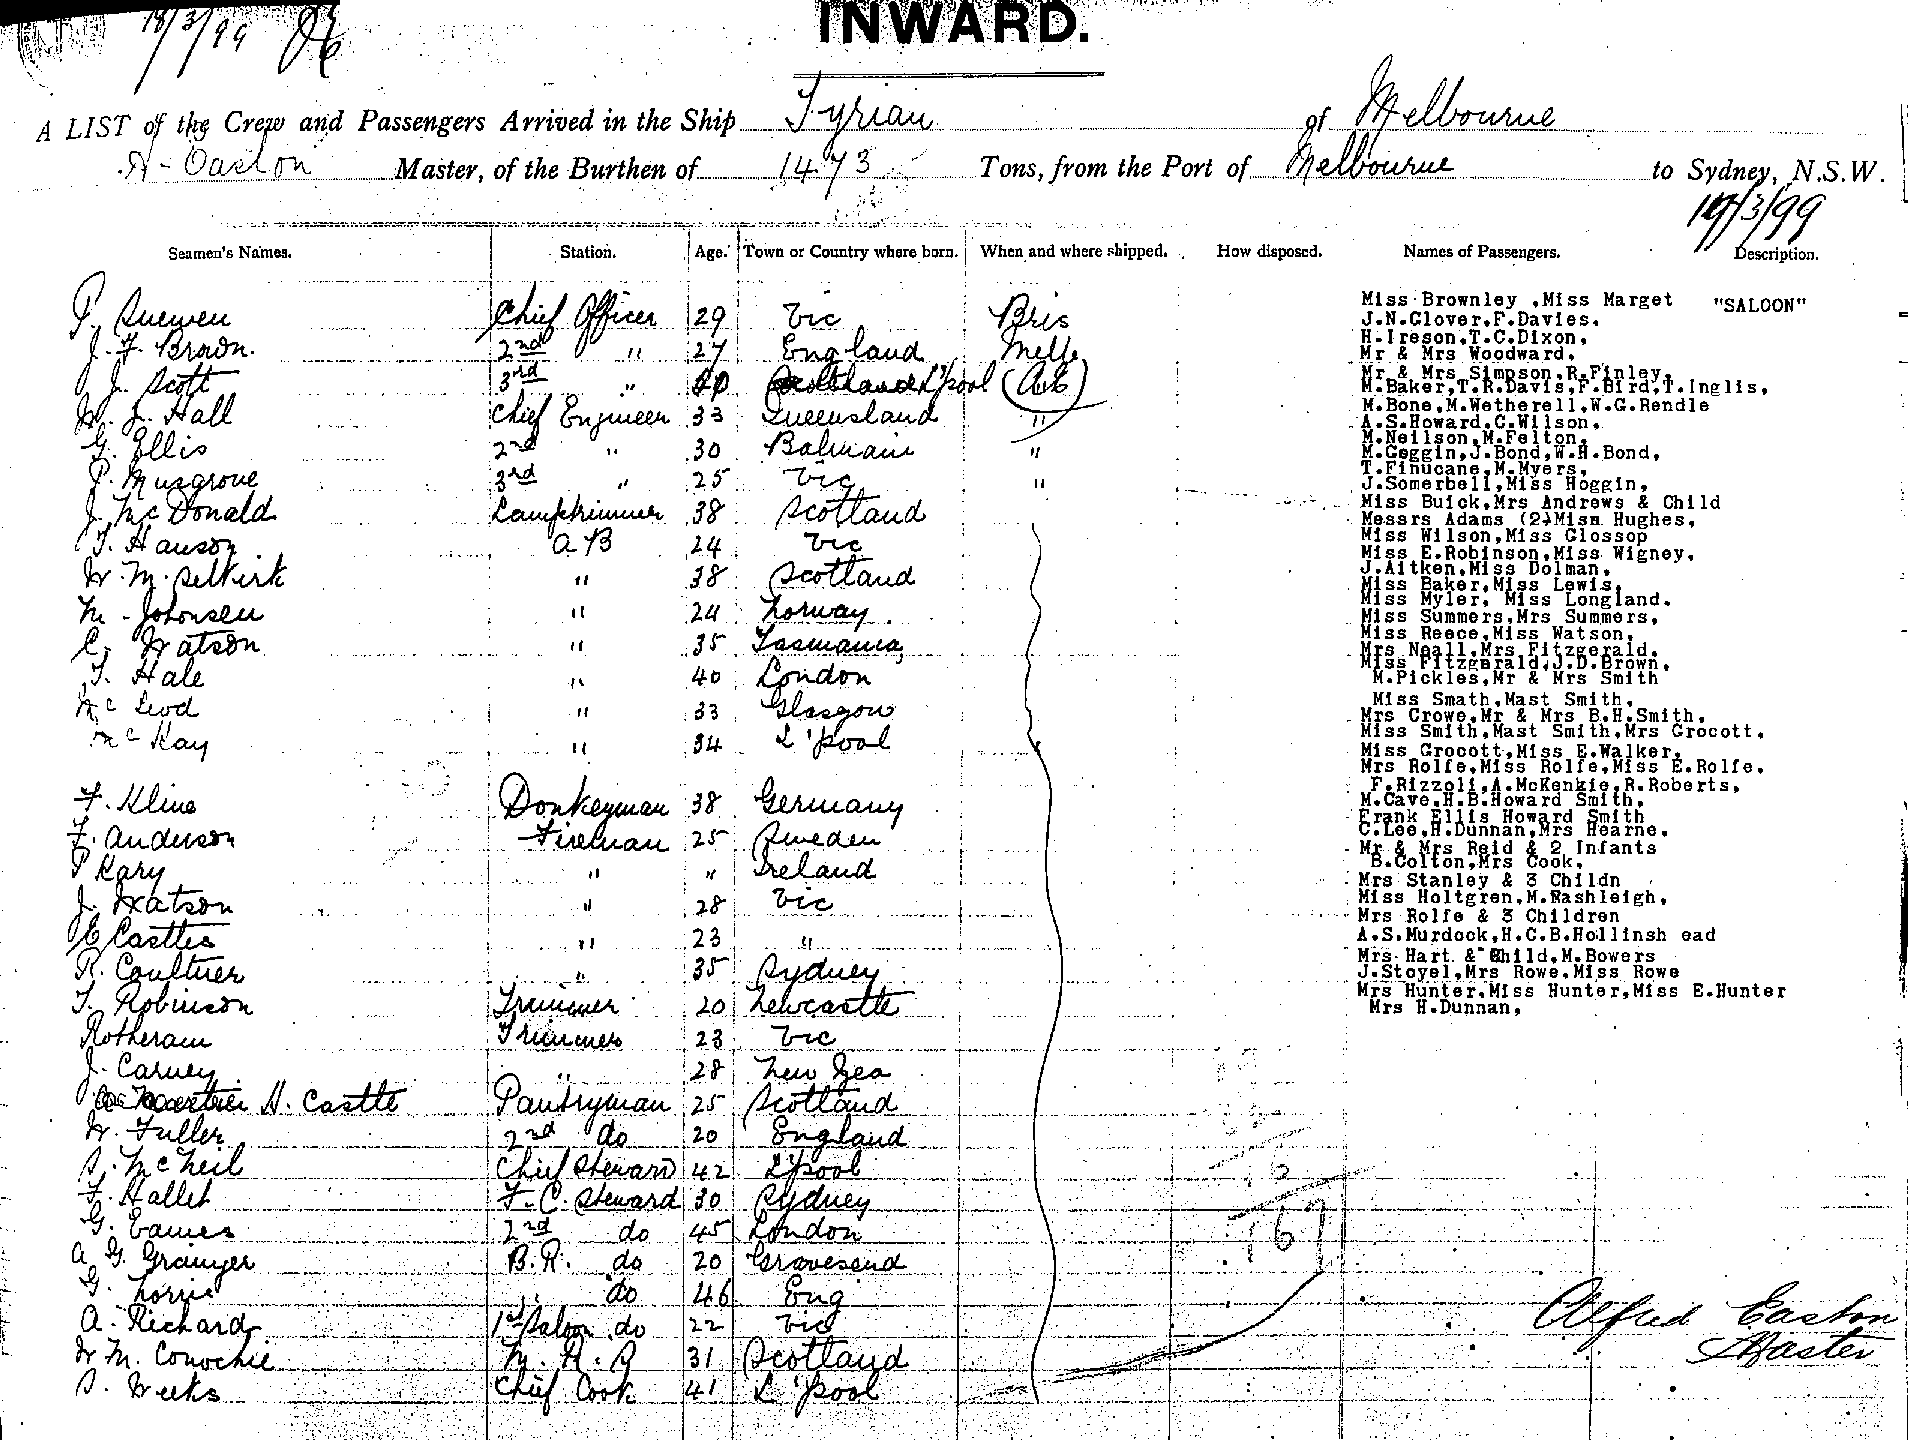 18/3/99
INWARD.
A LIST of the Crew and Passengers Arrived in the Ship Tyrian of Melbourne
A. Easton Master, of the Burthen of 1473 Tons, from the Port of Melbourne to Sydney, N.S.W.
19/3/99
Seamen's Names. Station. Age. Town or Country where born. When and where shipped. How disposed. Names of Passengers. Description.
P. Suewen Chief Officer 29 Vic Bris
J. F. Brown. 2nd " 27 England Melb
J. Scott 3rd " L'pool
W. J. Hall Chief Engineer 33 Queensland "
G. Ellis 2nd " 30 Balmain "
P. Musgrove 3rd " 25 Vic "
J. McDonald Lamptrimmer 38 Scotland
T. Hanson A B 24 Vic
W. M. Selkirk " 38 Scotland
M. Johnsen " 24 Norway.
C. Watson " 35 Tasmania
T. Hale " 40 London
McLeod " 33 Glasgow
McKay " 34 L'pool
F. Kline Donkeyman 38 Germany
F. Anderson Fireman 25 Sweden
P Kary " " Ireland
J. Watson " 28 Vic
E Castles " 23 "
R. Coultner " 35 Sydney
T. Robinson Trimmer 20 Newcastle
Rotheram Trimmer 23 Vic
J. Carney " 28 New Zea
H. Castle Pantryman 25 Scotland
W. Fuller 2nd do 20 England
S. McNeil Chief Steward 42 L'pool
F. Hallet F. C. Steward 30 Sydney
G. Eames 2nd do 45 London
A G. Grainger B. R. do 20 Gravesend
G. Lorne " do 46 Eng
A. Richard 1st Saloon do 22 Vic
W M. Conochie M. R. S 31 Scotland
S. Weeks Chief Cook 41 L'pool
Miss Brownley ,Miss Marget "SALOON"
J.N.Glover,F.Davies.
H.Ireson,T.C.Dixon,
Mr & Mrs Woodward,
Mr & Mrs Simpson,R.Finley,
M.Baker,T.R.Davis,F.Bird,T.Inglis,
M.Bone,M.Wetherell,W.G.Rendle
A.S.Howard,C.Wilson,
M.Neilson,M.Felton,
M.Coggin,J.Bond,W.H.Bond,
T.Finucane,M.Myers,
J.Somerbell,Miss Hoggin,
Miss Buick,Mrs Andrews & Child
Messrs Adams (2)Miss Hughes,
Miss Wilson,Miss Glossop
Miss E.Robinson,Miss Wigney,
J.Aitken,Miss Dolman,
Miss Baker,Miss Lewis,
Miss Myler, Miss Longland.
Miss Summers,Mrs Summers,
Miss Reece,Miss Watson,
Mrs Neall,Mrs Fitzgerald,
Miss Fitzgerald,J.D.Brown,
M.Pickles,Mr & Mrs Smith
Miss Smath,Mast Smith,
Mrs Crowe,Mr & Mrs B.H.Smith,
Miss Smith,Mast Smith,Mrs Grocott,
Miss Grocott,Miss E.Walker,
Mrs Rolfe,Miss Rolfe,Miss E.Rolfe,
F.Rizzoli,A.McKenkie,R.Roberts,
M.Cave,H.B.Howard Smith,
Frank Ellis Howard Smith
C.Lee,H.Dunnan,Mrs Hearne,
Mr & Mrs Reid & 2 Infants
B.Colton,Mrs Cook,
Mrs Stanley & 3 Childn
Miss Holtgren,M.Rashleigh,
Mrs Rolfe & 3 Children
A.S.Murdock,H.C.B.Hollinsh ead
Mrs Hart & Child,M.Bowers
J.Stoyel,Mrs Rowe,Miss Rowe
Mrs Hunter,Miss Hunter,Miss E.Hunter
Mrs H.Dunnan,
167
Alfred Easton
Master